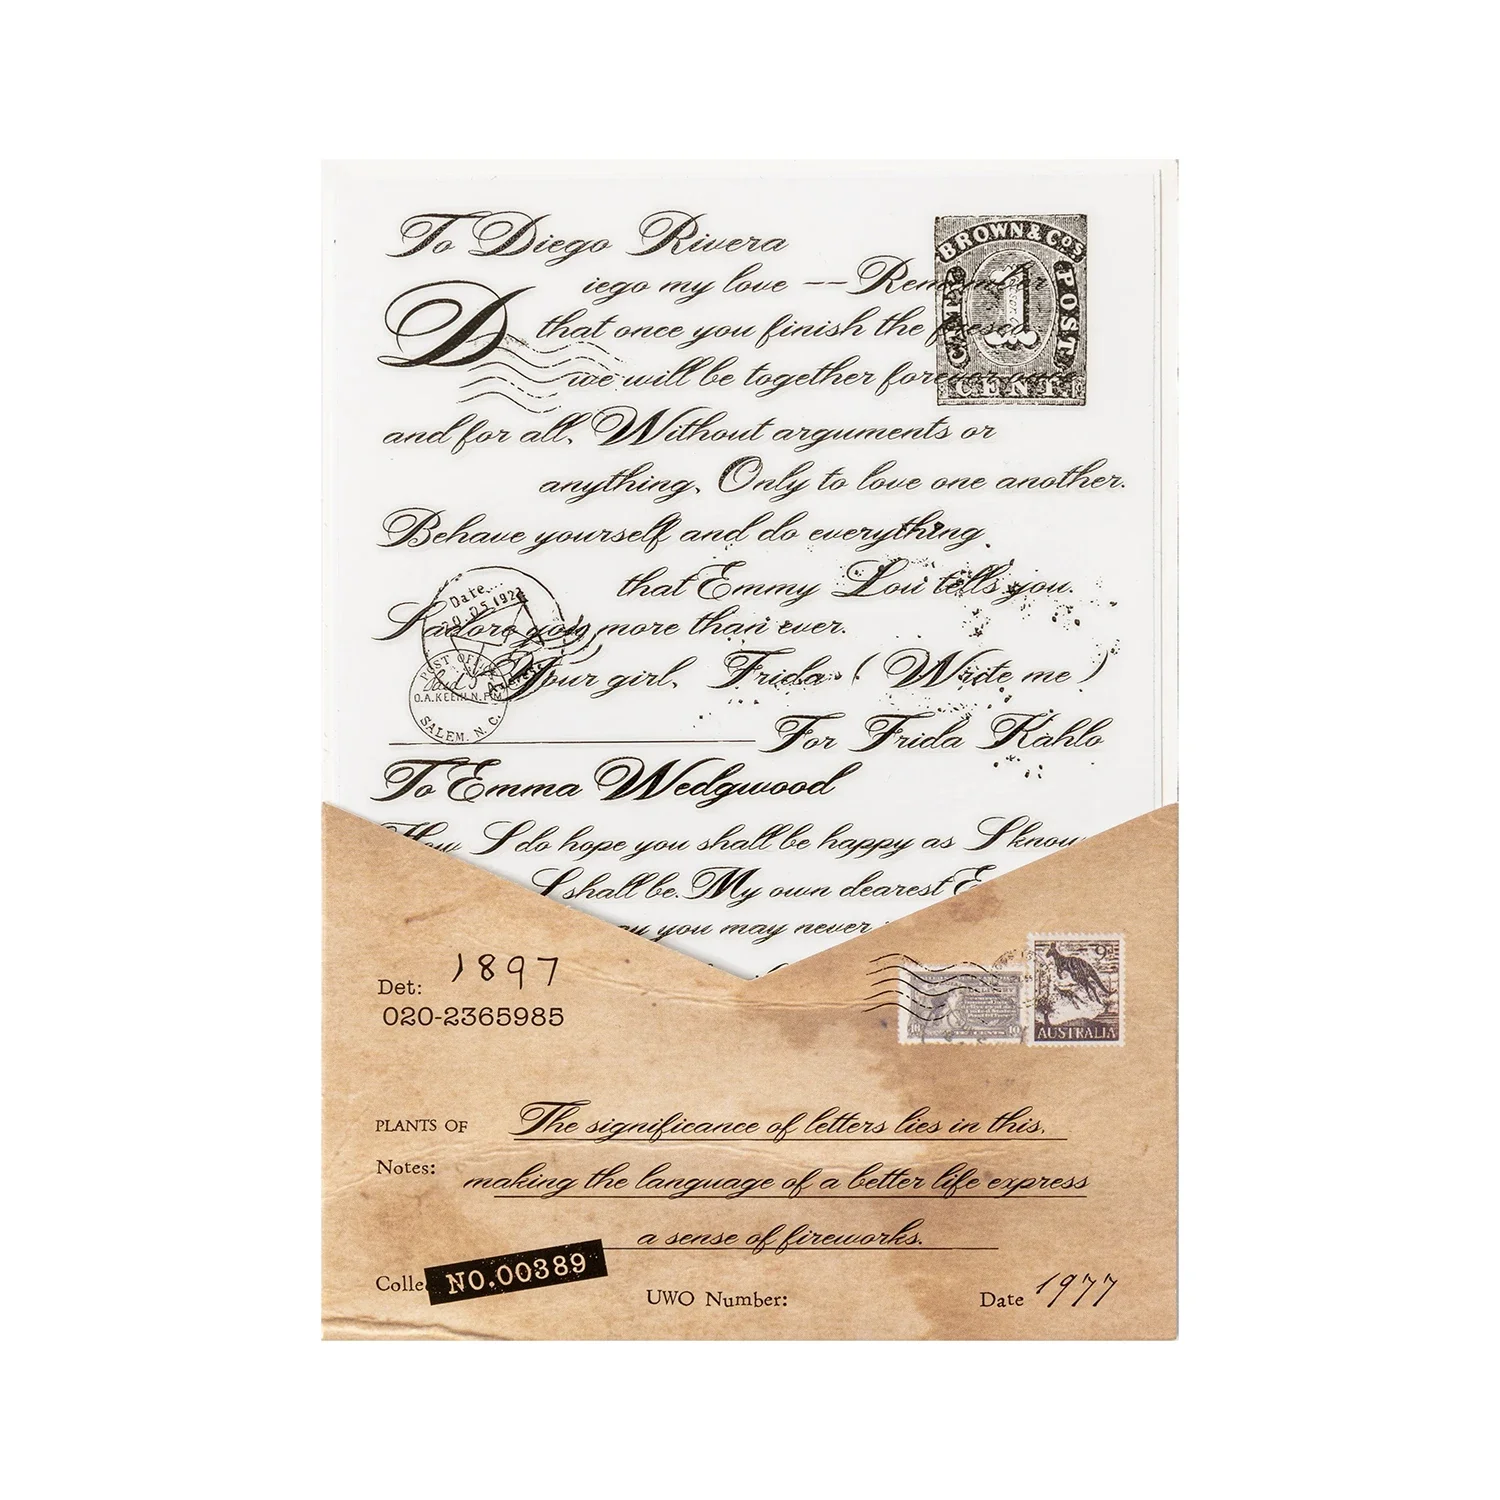 To Diego Rivera
Diego my love -- Remember
that once you finish the fresco
we will be together forever once
and for all. Without arguments or
anything. Only to love one another.
Behave yourself and do everything
that Emmy Lou tells you.
I adore you more than ever.
Your girl, Frida (Write me)
For Frida Kahlo
BROWN & COS
POST
1
CENT
Date
POST OFFICE
O.A.KEEHLN.P.M
SALEM. N. C.
To Emma Wedgwood
How I do hope you shall be happy as I know
I shall be. My own dearest E
you may never
Det: 1897
020-2365985
9
AUSTRALIA
10 CENTS 10
PLANTS OF The significance of letters lies in this,
Notes: making the language of a better life express
a sense of fireworks.
Colle NO.00389
UWO Number:
Date 1977